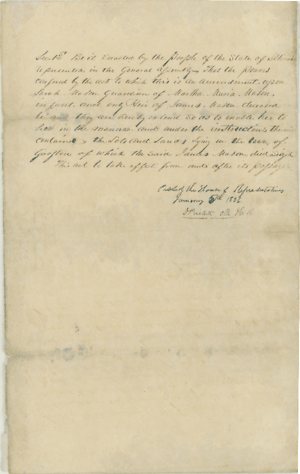 Sect 1st Be it enacted by the People of the State of Illinois
represented in the General Assembly, That the powers
confered by the act to which this is an amendment upon
Sarah Mason Guardian of Martha Maria Mason
infant and only heir of James Mason deceased
be and they are hereby extend so as to enable her to
sell in the manner and under the restrictions therein
contained the Lots and Lands lying in the town of
Grafton of which the said James Mason died seized
This act to take effect from and after its passage
Passed the House of Representatives
January 5th